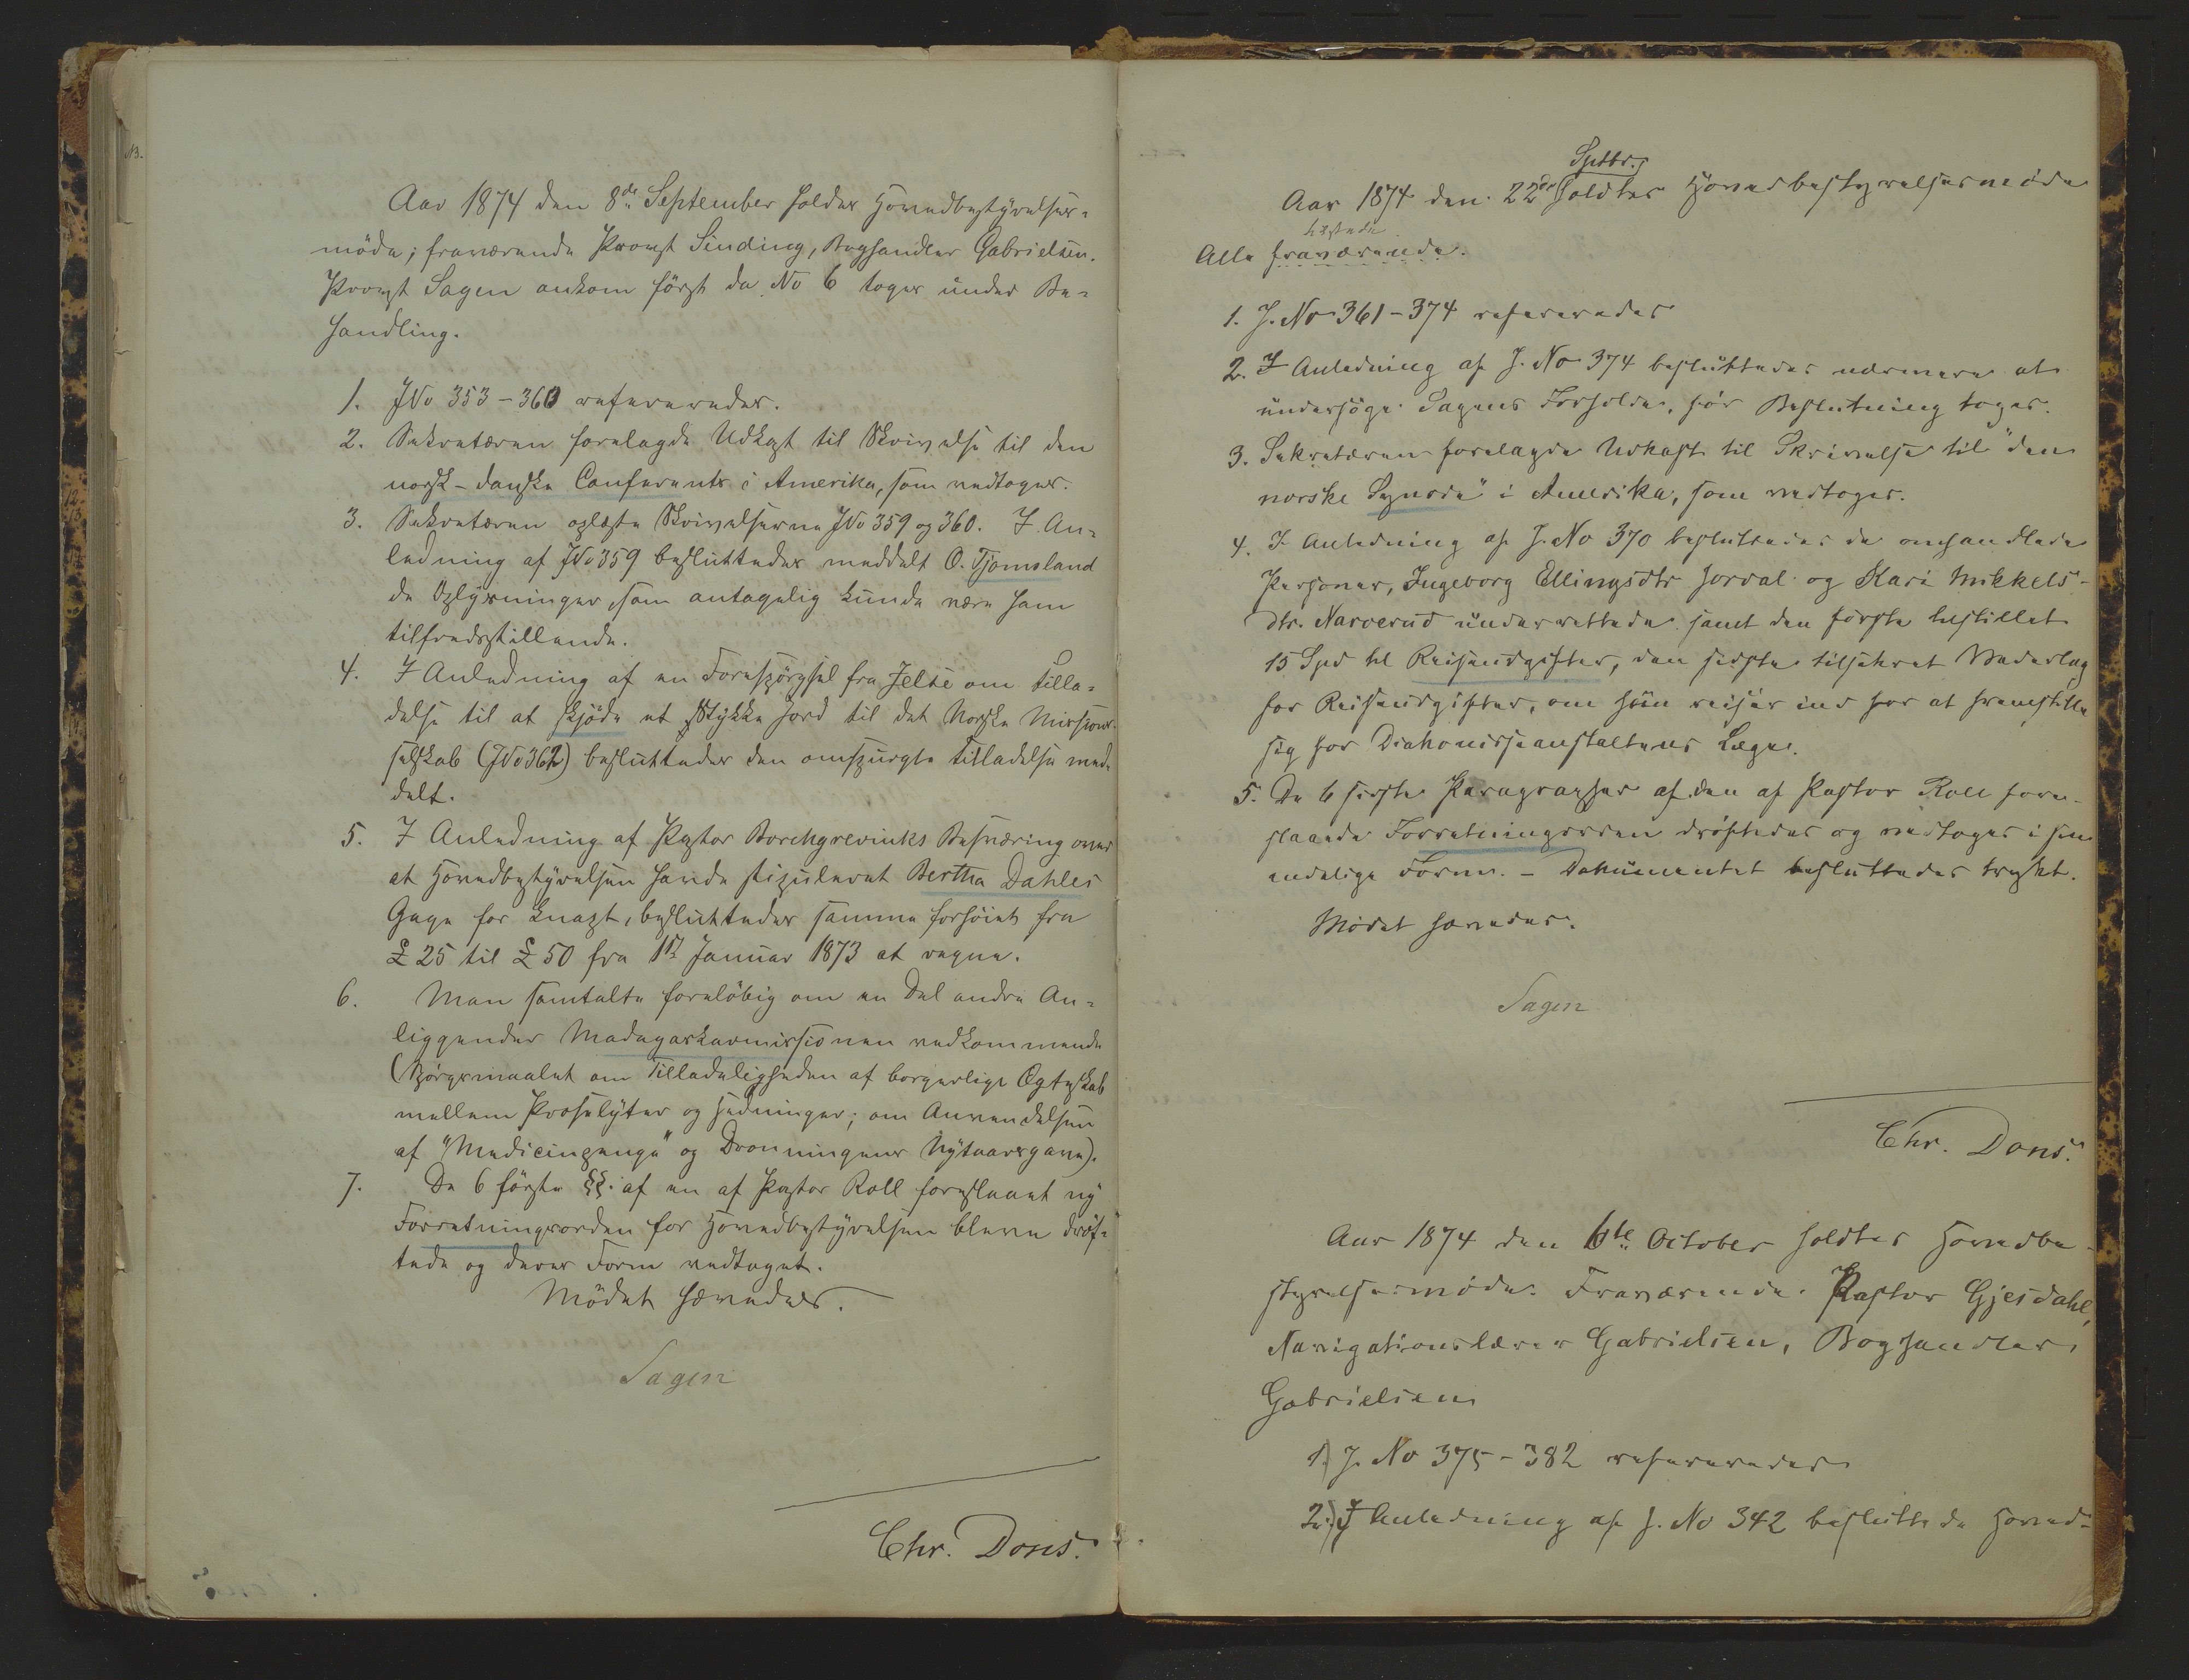 Aar 1874 den 8de September holdes Hovedbestyrelses-
möde; fraværende Provst Sinding, Boghandler Gabrielsen.
Provst Sagen ankom först da No 6 toges under Be-
handling.
1. JNo 353-360 refereredes.
2. Sekretæren forelagde Udkast til Skrivelse til den
norsk-danske Conferents i Amerika, som vedtoges.
3. Sekretæren oplæste Skrivelserne JNo 359 og 360. I An-
ledning af JNo 359 besluttedes meddelt O. Tjomsland
de Oplysninger, som antagelig kunde være ham
tilfredsstillende.
4. I Anledning af en Forespörgsel fra Jelse om Tilla-
delse til at skjöde et Stykke Jord til det Norske Missions-
selskab (JNo 362) besluttedes den omspurgte Tilladelse med-
delt.
5. I Anledning af Pastor Borchgrevinks Besværing over
at Hovedbestyrelsen havde stipuleret Bertha Dahles
Gage for knapt, besluttedes samme forhöiet fra
£ 25 til £ 50 fra 1st Januar 1873 at regne.
6. Man samtalte foreløbig om en Del andre An-
liggender Madagaskarmissionen vedkommende
(Spörgsmaalet om Tilladeligheden af borgerlige Ægteskab
mellem Proselyter og Hedninger; om Anvendelsen
af "Medicinpenge" og Dronningens Nytaarsgave).
7. De 6 förste §§. af en af Pastor Roll foreslaaet ny
Forretningsorden for Hovedbestyrelsen bleve dröf-
tede og deres Form vedtaget.
Mödet hævedes.
Sagen
Chr. Dons.
Septbr.
Aar 1874 den 22de holdtes Hovedbestyrelsesmöde
tilstede
Alle fraværende.
1. J. No 361-374 refereredes
2. I Anledning af J. No 374 besluttedes nærmere at
undersöge Sagens Forholde, för Beslutning toges.
3. Sekretæren forelagde Udkast til Skrivelse til "den
norske Synode" i Amerika, som vedtoges.
4. I Anledning af J. No 370 besluttedes de omhandlede
Personer, Ingeborg Ellingsdtr Horval og Kari Mikkels-
dtr. Narverud underrettede samt den förste tilstillet
15 Spd til Reiseudgifter, den sidste tilsikret Vederlag
for Reiseudgifter, om hun reiser ind for at fremstille
sig for Diakonisseanstaltens Læge.
5. De 6 sidste Paragrapher af den af Pastor Roll fore-
slaaede Forretningsorden dröftedes og vedtoges i sin
endelige Form. - Dokumentet besluttedes trykt.
Mödet hævedes.
Sagen
Chr. Dons.
Aar 1874 den 6te October holdtes Hovedbe-
styrelsesmöde. Fraværende. Pastor Gjesdahl,
Navigationslærer Gabrielsen, Boghandler
Gabrielsen
1) J. No 375-382 refereredes
2.) I Anledning af J. No 342 besluttede Hoved-